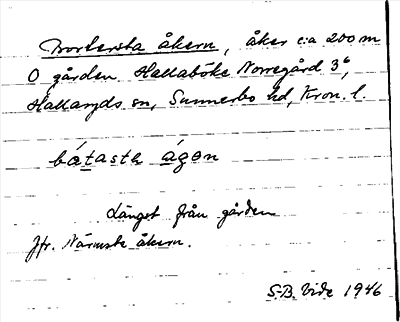 Bortersta åkern, åker c:a 200 m
O gården Hallaböke Norregård 3⁶,
Hallaryds sn, Sunnerbo hd, Kron. l.
bátastə ágən
Längst från gården
Jfr. Närmste åkern.
S-B. Vide 1946